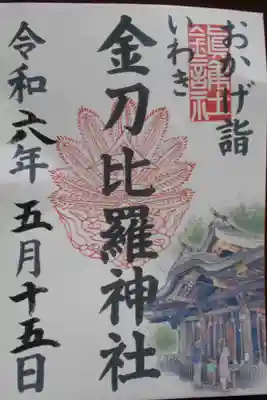 おかげ詣
いわき
金刀比羅神社
令和六年五月十五日